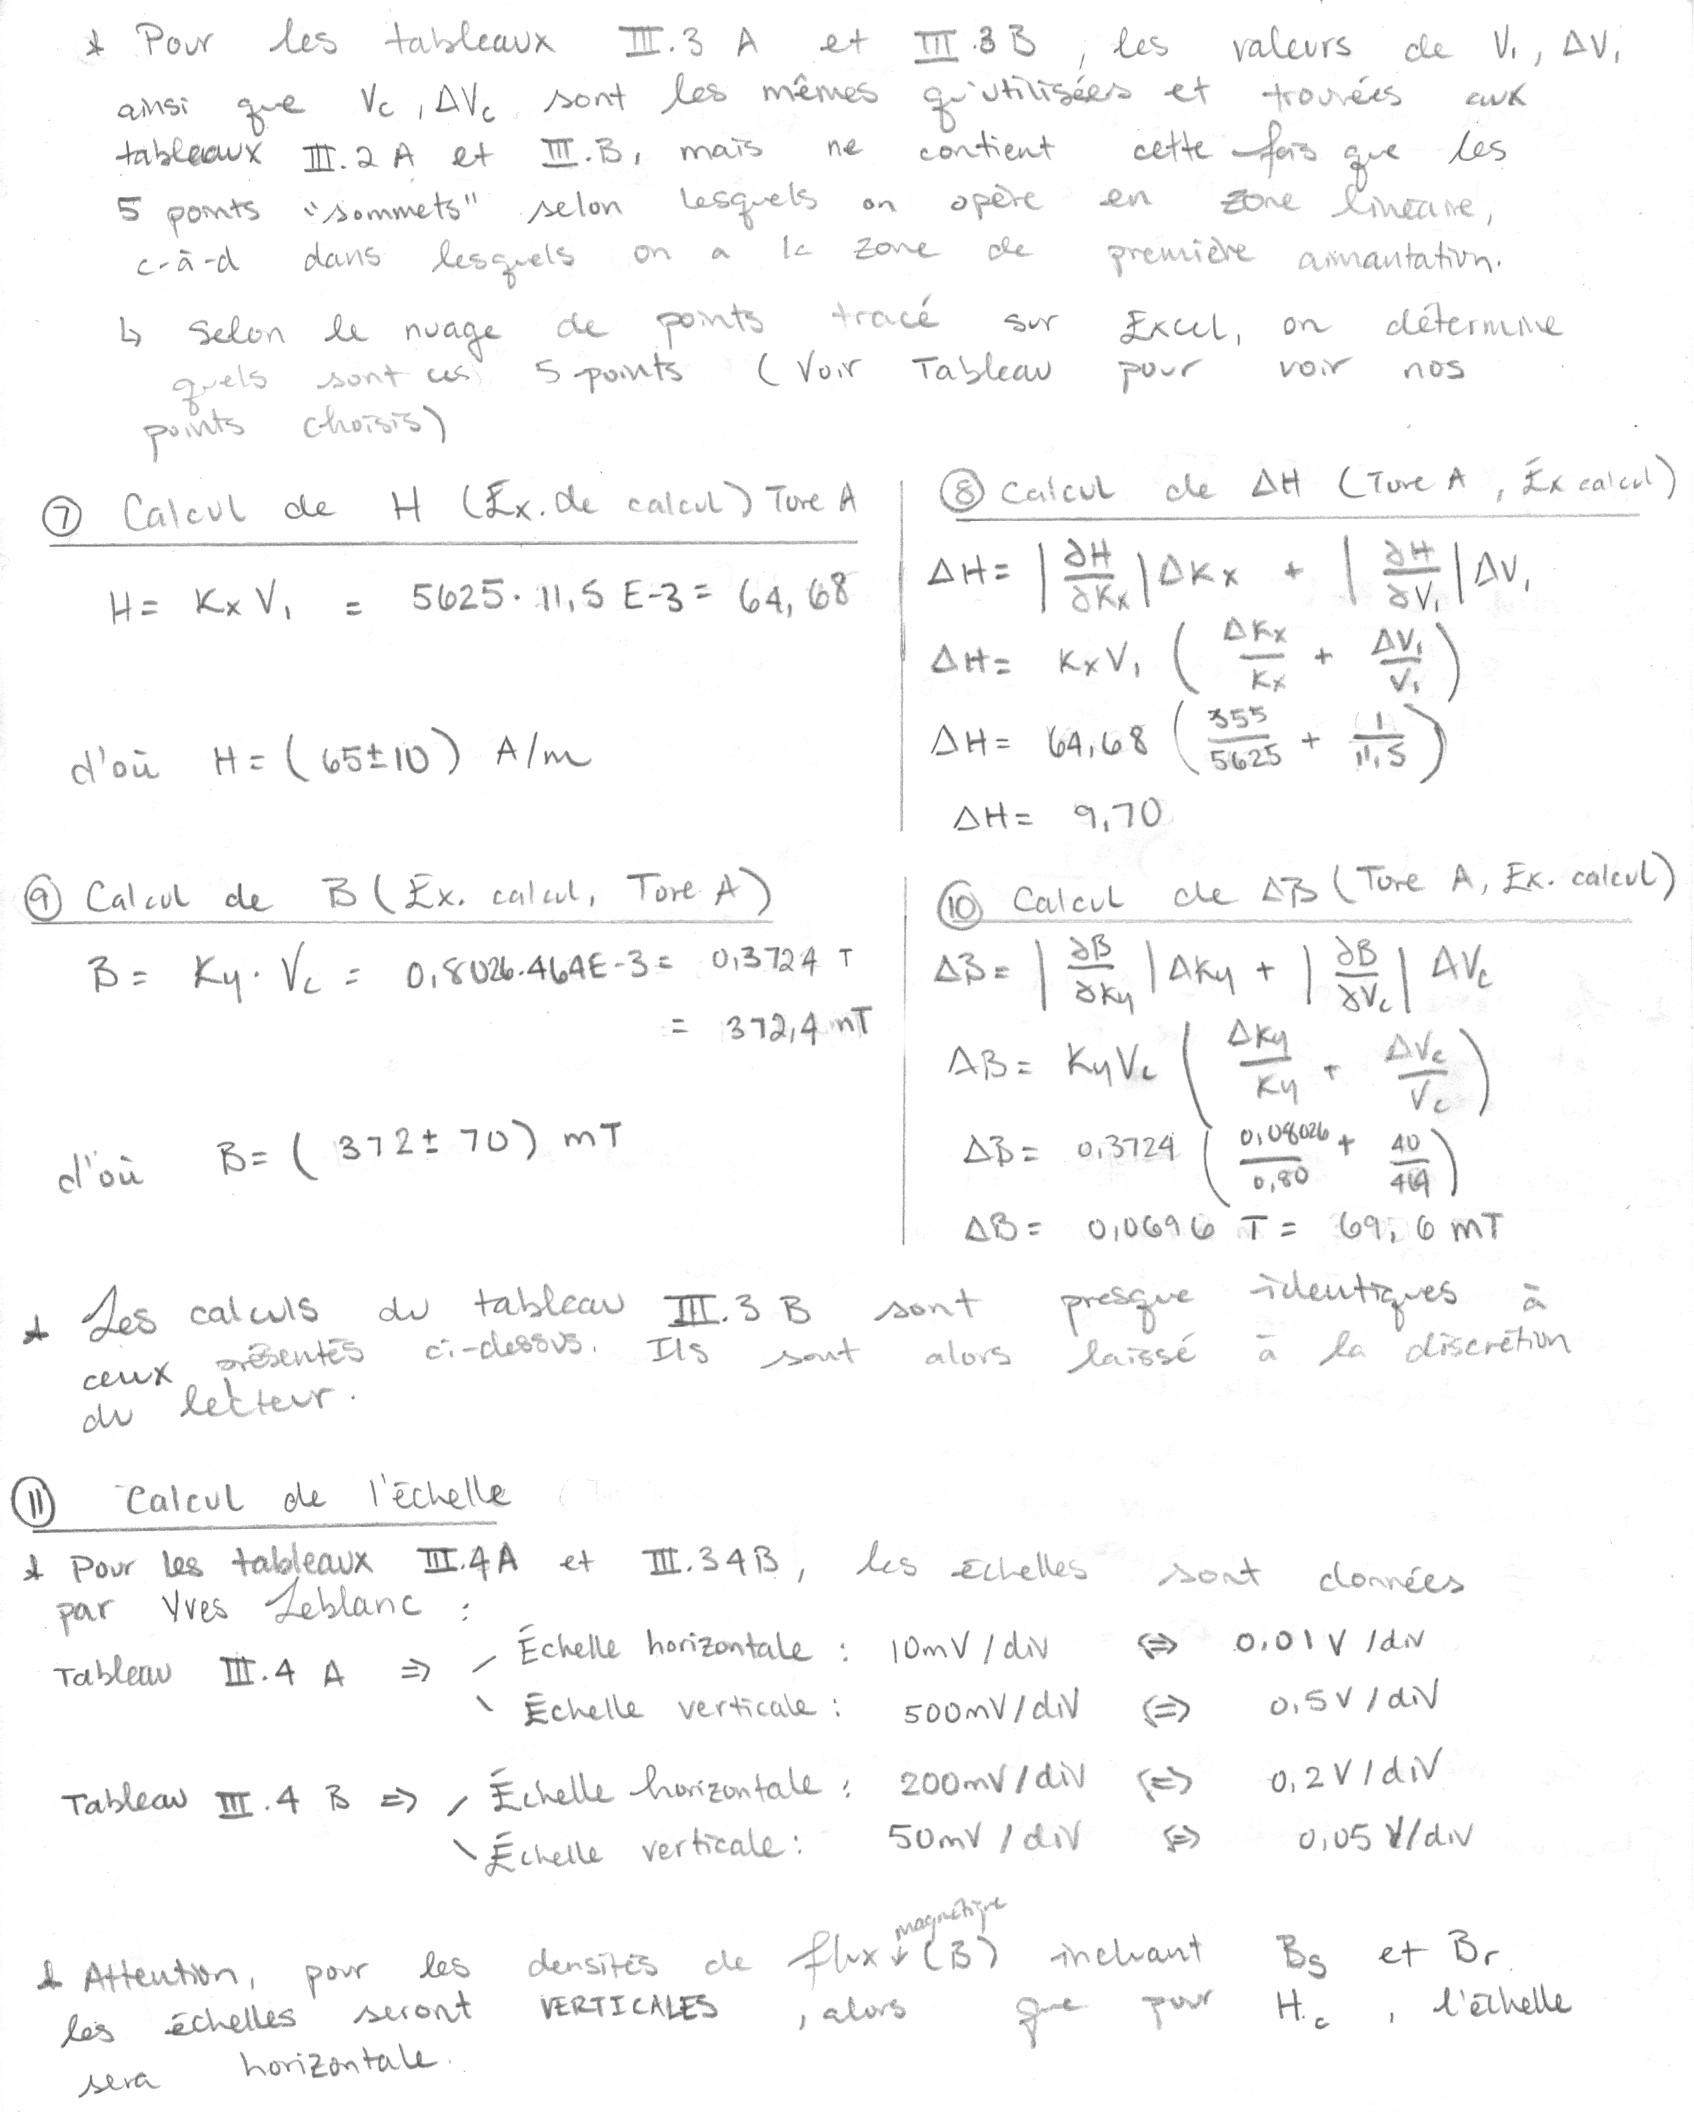 * Pour les tableaux III.3 A et III.3B, les valeurs de V₁, ΔV₁
ainsi que Vc, ΔVc sont les mêmes qu'utilisées et trouvées aux
tableaux III.2 A et III.B, mais ne contient cette fois que les
5 points "sommets" selon lesquels on opère en zone linéaire,
c-à-d dans lesquels on a la zone de première aimantation.
↳ Selon le nuage de points tracé sur Excel, on détermine
quels sont ces 5 points (Voir Tableau pour voir nos
points choisis)
⑦ Calcul de H (Ex. de calcul) Tore A
H = Kx V₁ = 5625 · 11,5 E-3 = 64,68
d'où H = (65 ± 10) A/m
⑧ Calcul de ΔH (Tore A, Ex calcul)
ΔH = |∂H/∂Kx| ΔKx + |∂H/∂V₁| ΔV₁
ΔH = KxV₁ (ΔKx/Kx + ΔV₁/V₁)
ΔH = 64,68 (355/5625 + 1/11,5)
ΔH = 9,70
⑨ Calcul de B (Ex. calcul, Tore A)
B = Ky · Vc = 0,8026·464E-3 = 0,3724 T
= 372,4 mT
d'où B = (372 ± 70) mT
⑩ Calcul de ΔB (Tore A, Ex. calcul)
ΔB = |∂B/∂Ky| ΔKy + |∂B/∂Vc| ΔVc
ΔB = KyVc (ΔKy/Ky + ΔVc/Vc)
ΔB = 0,3724 (0,08026/0,80 + 40/464)
ΔB = 0,0696 T = 69,6 mT
* Les calculs du tableau III.3 B sont presque identiques à
ceux présentés ci-dessus. Ils sont alors laissé à la discrétion
du lecteur.
⑪ Calcul de l'échelle
* Pour les tableaux III.4A et III.34B, les échelles sont données
par Yves Leblanc :
Tableau III.4 A ⇒ Échelle horizontale : 10mV/div ⇔ 0.01V/div
Échelle verticale : 500mV/div ⇔ 0,5V/div
Tableau III.4 B ⇒ Échelle horizontale : 200mV/div ⇔ 0,2V/div
Échelle verticale : 50mV/div ⇔ 0,05V/div
* Attention, pour les densités de flux magnétique (B) incluant Bs et Br
les échelles seront VERTICALES, alors que pour Hc, l'échelle
sera horizontale.